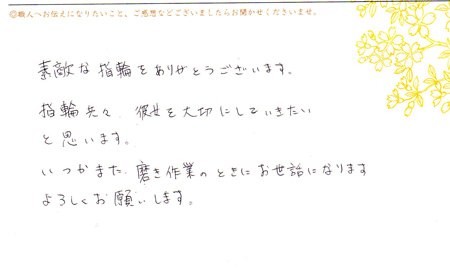 ◎職人へお伝えになりたいこと、ご感想などございましたらお聞かせくださいませ。
素敵な指輪をありがとうございます。
指輪共々、彼女を大切にしていきたい
と思います。
いつかまた、磨き作業のときにお世話になります
よろしくお願いします。